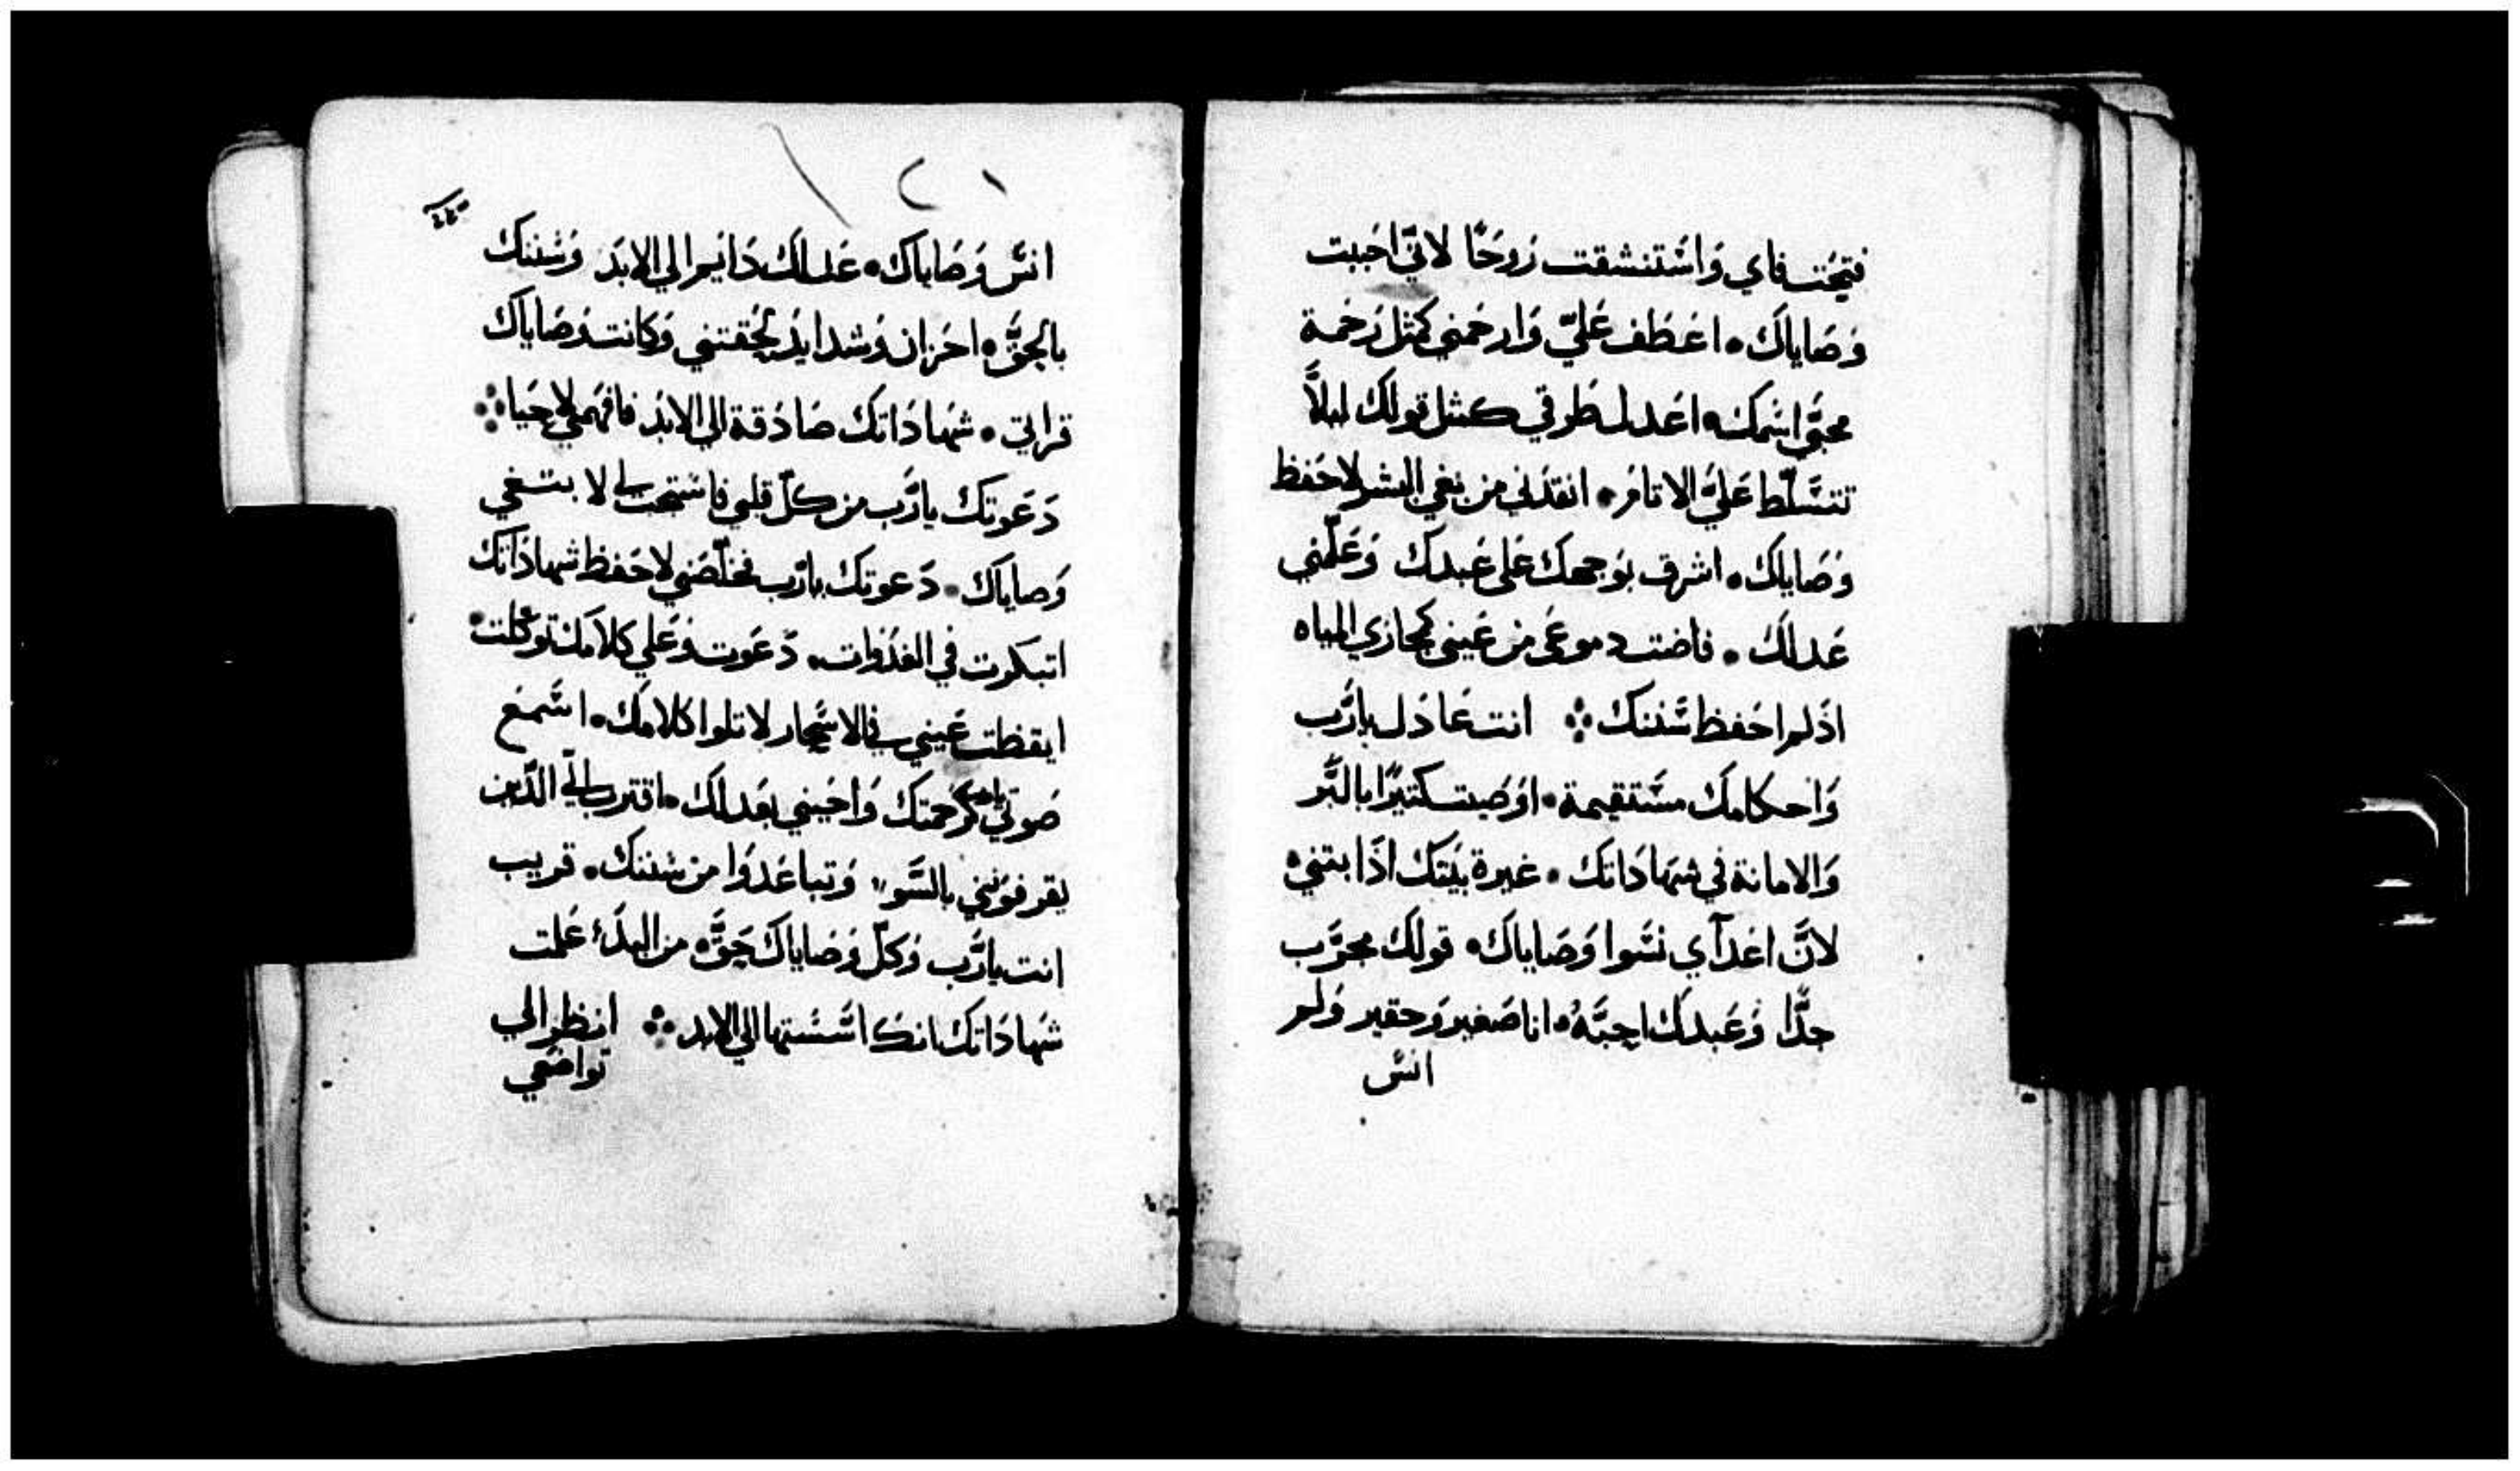 فتحت فاي وَاسْتنشقت رُوحًا لانّي احَببت
وَصَاياكَ ٠ اعطَف عَليّ وَارحَمني كمَثل رَحْمة
محبّي اسْمك ٠ اعَدل طَرقي كمثل قولك ليلاَّ
تتسَّلّط عَليَّ الاتامُ ٠ انقدَني من بَغي البشر لاحَفظ
وَصَاياكَ ٠ اشرق بوَجهكَ عَلى عَبدكَ وَعَلّمني
عَدلكَ ٠ فاضت دموعَي من عَينيَّ كمجاري المياه
اذَ لم احَفظ سُننكَ ܀ انت عَادَل يارَّب
وَاحكامكَ مسْتقيمة ٠ اوَصَيت كتيرًا بالبَّر
وَالامانة في شهَادَاتكَ ٠ غيرة بَيتكَ اذَابتني ٠
لانَّ اعَدآي نسَوا وَصَاياكَ ٠ قولكَ مجرَّب
جدًّا وَعَبدكَ احِبَّهُ ٠ انا صَغير وَحقير وَلم
انسَ
انسَ وَصَاياكَ ٠ عَدلكَ دَايم الي الابَد وَسُننكَ
بالحقَّ ٠ احَزان وَشدايدُ لحُقتني وَكانت وَصَاياكَ
قراتي ٠ شهَادَاتكَ صَادَقة الي الابدُ فافهَمني لاحَيا ܀
دَعَوتكَ يارَّب من كلّ قلبي فاسْتجب لي لابتغي
وَصاياكَ ٠ دَعوتكَ يارَّب فخلّصَني لاحَفظ شهادَاتكَ
اتبكرت في الغدَوات ٠ دَعَوت وَعَلي كلامكَ توكلّت ٠
ايقظت عَيني في الاسَّحار لاتلوا كلامكَ ٠ اسَّمَع
صَوتي يارب كرحمتكَ وَاحَييني بعَدلكَ ٠ اقترب اليّ الذَّين
يقرفوَنني بالسَّوء وَتباعَدوَا من سننكَ ٠ قريب
انت يارَّب وَكلّ وَصَاياكَ حَقَّ ٠ من البدَء عَلمت
شهَادَاتكَ انكَ اسَّسْتها الي الابد ܀ انظر الي
تواضَعي